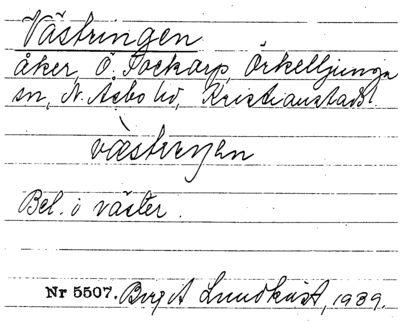 Västringen
åker, Ö. Fockarp, Örkelljunga
sn, N. Åsbo hd, Kristianstads l.
Bel. i väster.
Nr 5507. Birgit Lundkvist, 1939.